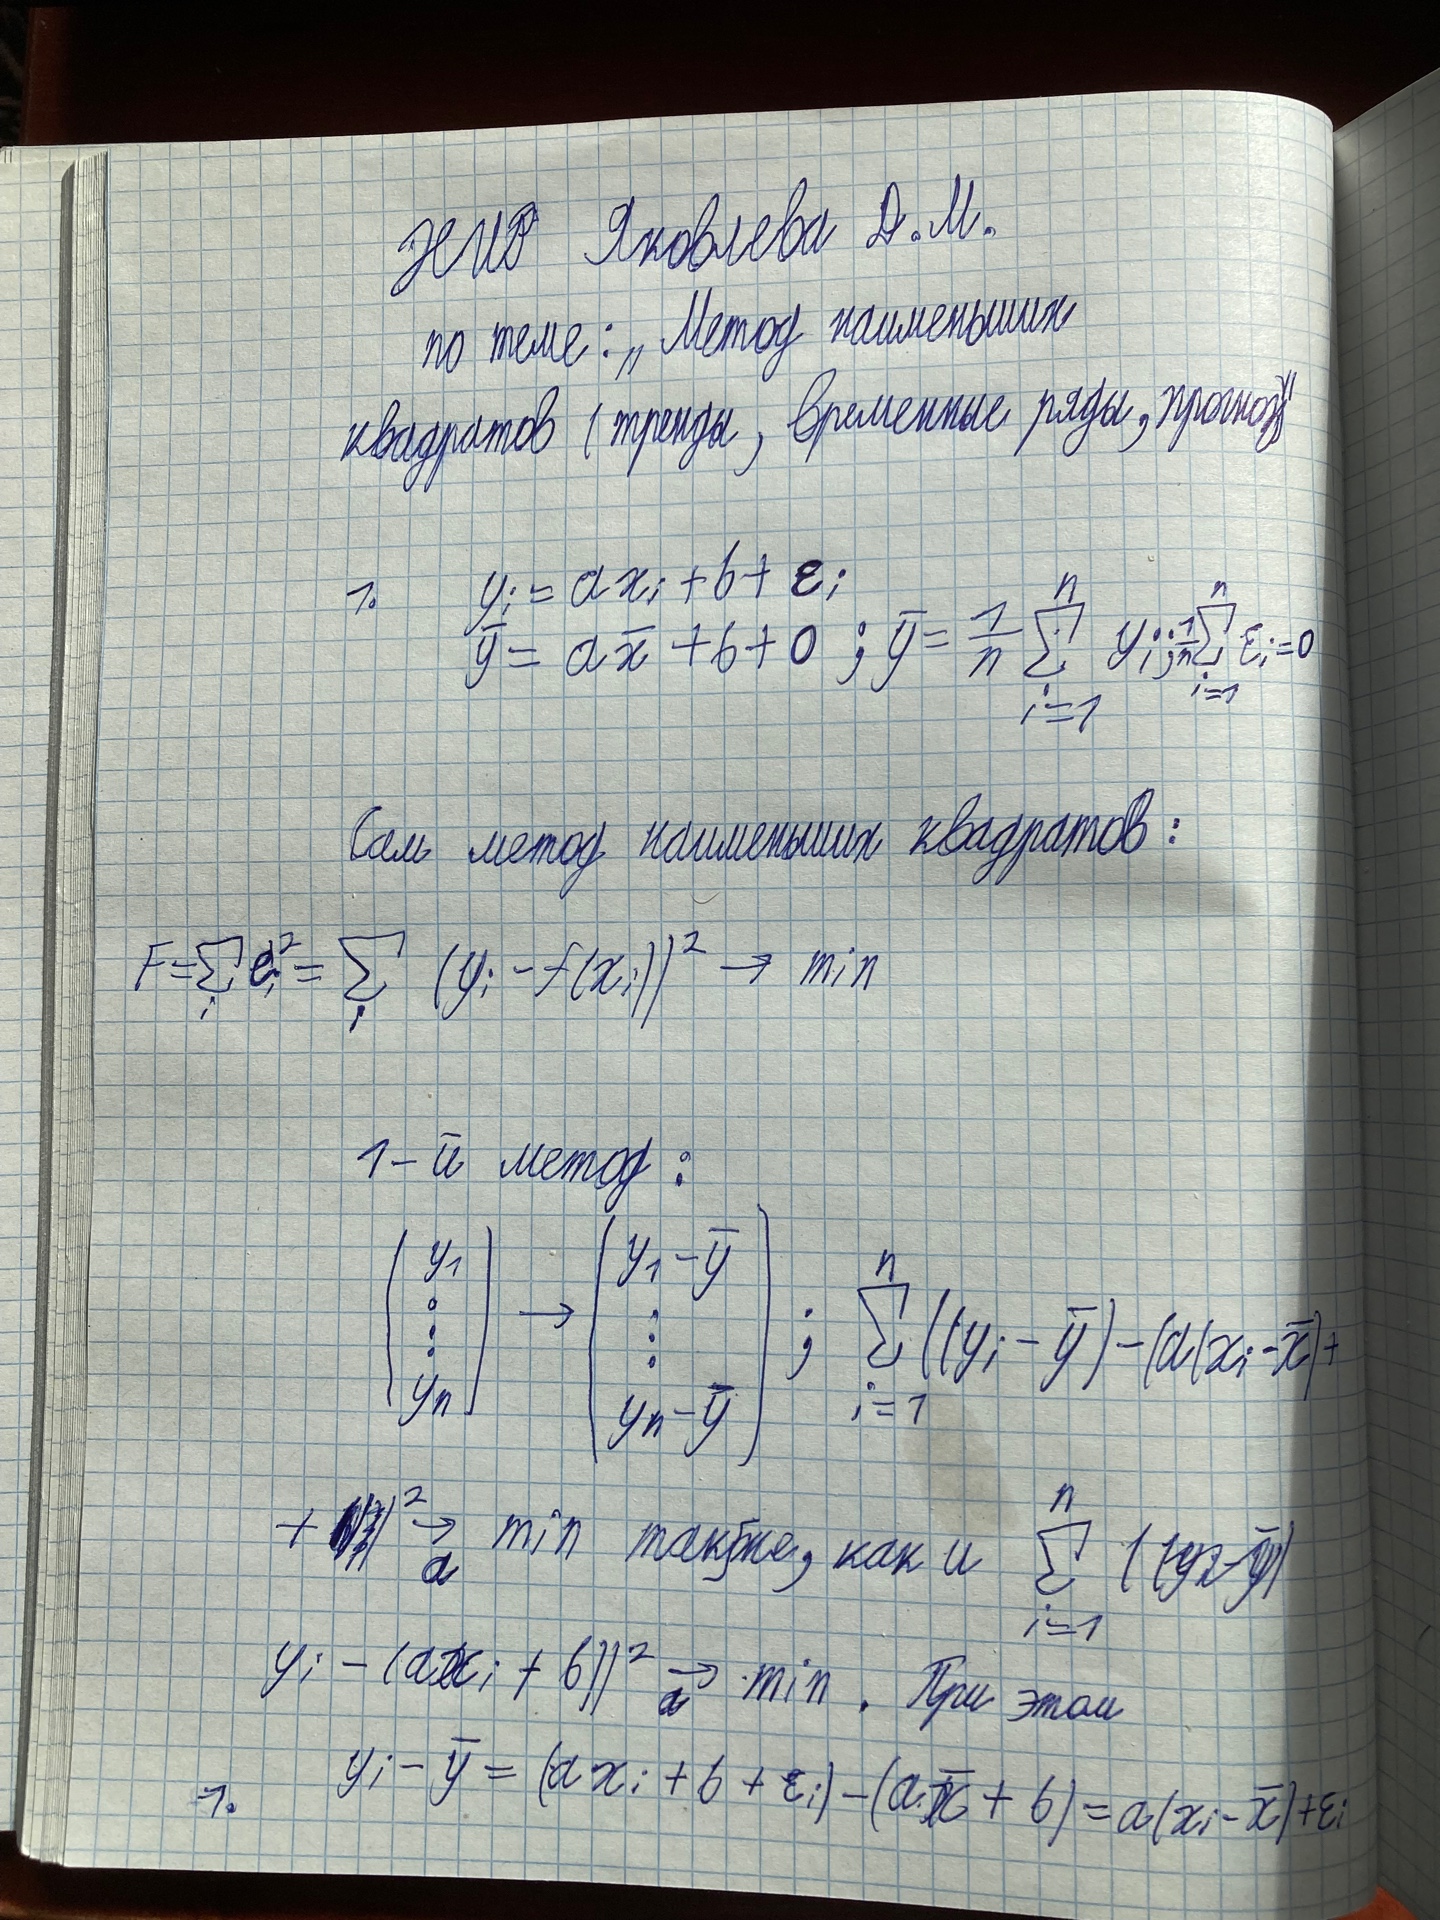 НИР Яковлева Д.М.
по теме: „Метод наименьших
квадратов (тренды, временные ряды, прогноз)"
1. yᵢ = axᵢ + b + εᵢ
ȳ = ax̄ + b + 0 ; ȳ = 1/n ∑ᵢ₌₁ⁿ yᵢ ; 1/n ∑ᵢ₌₁ⁿ εᵢ = 0
Сам метод наименьших квадратов:
F = ∑ᵢ eᵢ² = ∑ᵢ (yᵢ - f(xᵢ))² → min
1-й метод:
(y₁ ⋮ yₙ) → (y₁ - ȳ ⋮ yₙ - ȳ) ; ∑ᵢ₌₁ⁿ ((yᵢ - ȳ) - (a(xᵢ - x̄) +
+ ))² →ₐ min также, как и ∑ᵢ₌₁ⁿ (
yᵢ - (axᵢ + b))² →ₐ min. При этом
1. yᵢ - ȳ = (axᵢ + b + εᵢ) - (ax̄ + b) = a(xᵢ - x̄) + εᵢ